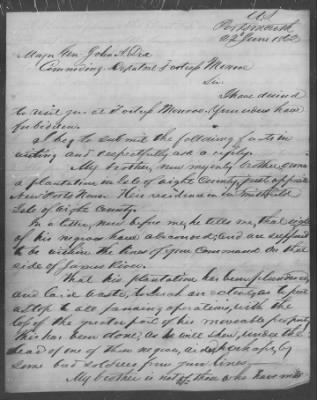 Portsmouth
22d June 1863
Major Gen. John A. Dix
Comm'g Departmt Fortress Monroe
Sir
I have desired
to visit you at Fortress Monroe. Your orders have
forbidden.
I beg to submit the following facts in
writing and respectfully ask a reply.
My brother, now my only brother, owns
a plantation in Isle of Wight County, just opposite
New Ports News. His residence in Smithfield
Isle of Wight County.
In a letter, now before me, he tells me, that eight
of his negroes have absconded; and are supposed
to be within the lines of your command on that
side of James River.
That his plantation has been plundered
and laid waste, to such an extent, as to put
a stop to all farming operations, with the
loss of the greater part of his movable property.
This has been done, as he will show, under the
lead of one of these negroes, aided perhaps, by
some bad soldiers from your lines.
My brother is not of those who have